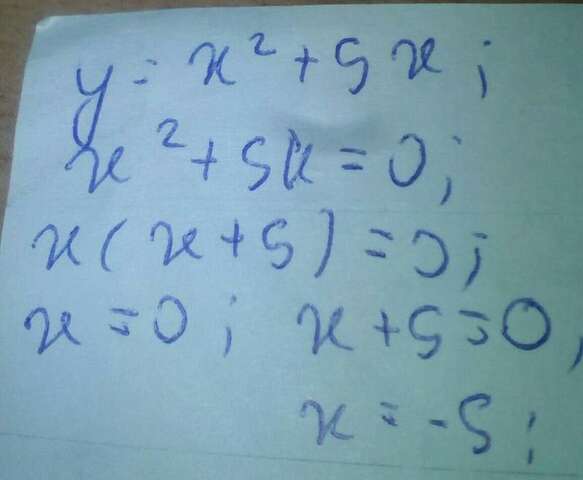 y = x² + 5x;
x² + 5x = 0;
x(x + 5) = 0;
x = 0; x + 5 = 0,
x = -5;